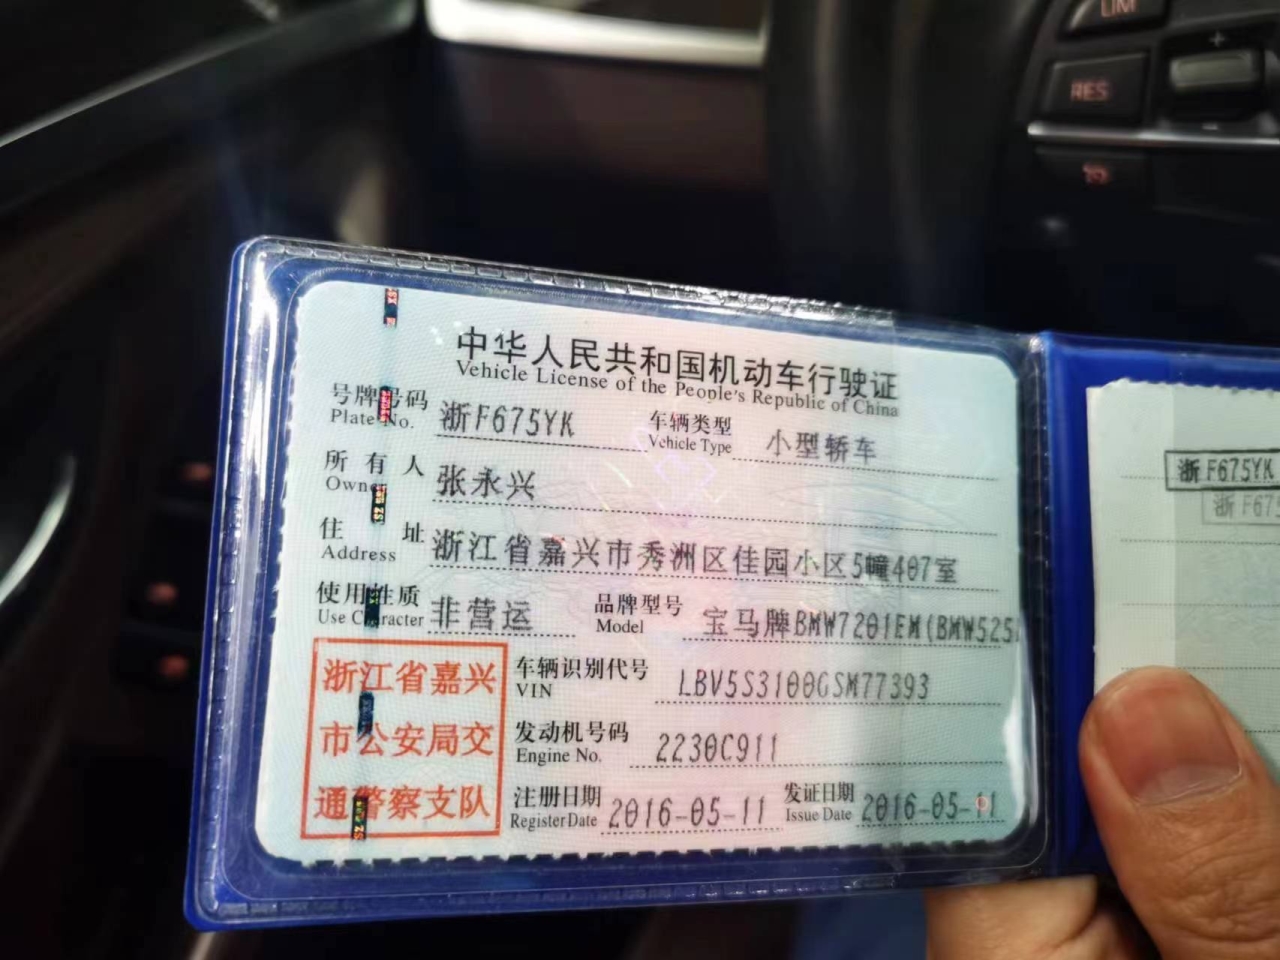 LIM
+
RES
-
中华人民共和国机动车行驶证
Vehicle License of the People's Republic of China
号牌号码 浙F675YK 车辆类型 小型轿车
Plate No. Vehicle Type
所有人 张永兴
Owner
住址 浙江省嘉兴市秀洲区佳园小区5幢407室
Address
使用性质 非营运 品牌型号 宝马牌BMW7201EM(BMW525
Use Character Model
浙江省嘉兴
市公安局交
通警察支队
车辆识别代号 LBV5S3100GSM77393
VIN
发动机号码 2230C911
Engine No.
注册日期 2016-05-11 发证日期 2016-05-11
Register Date Issue Date
浙F675YK
浙F675